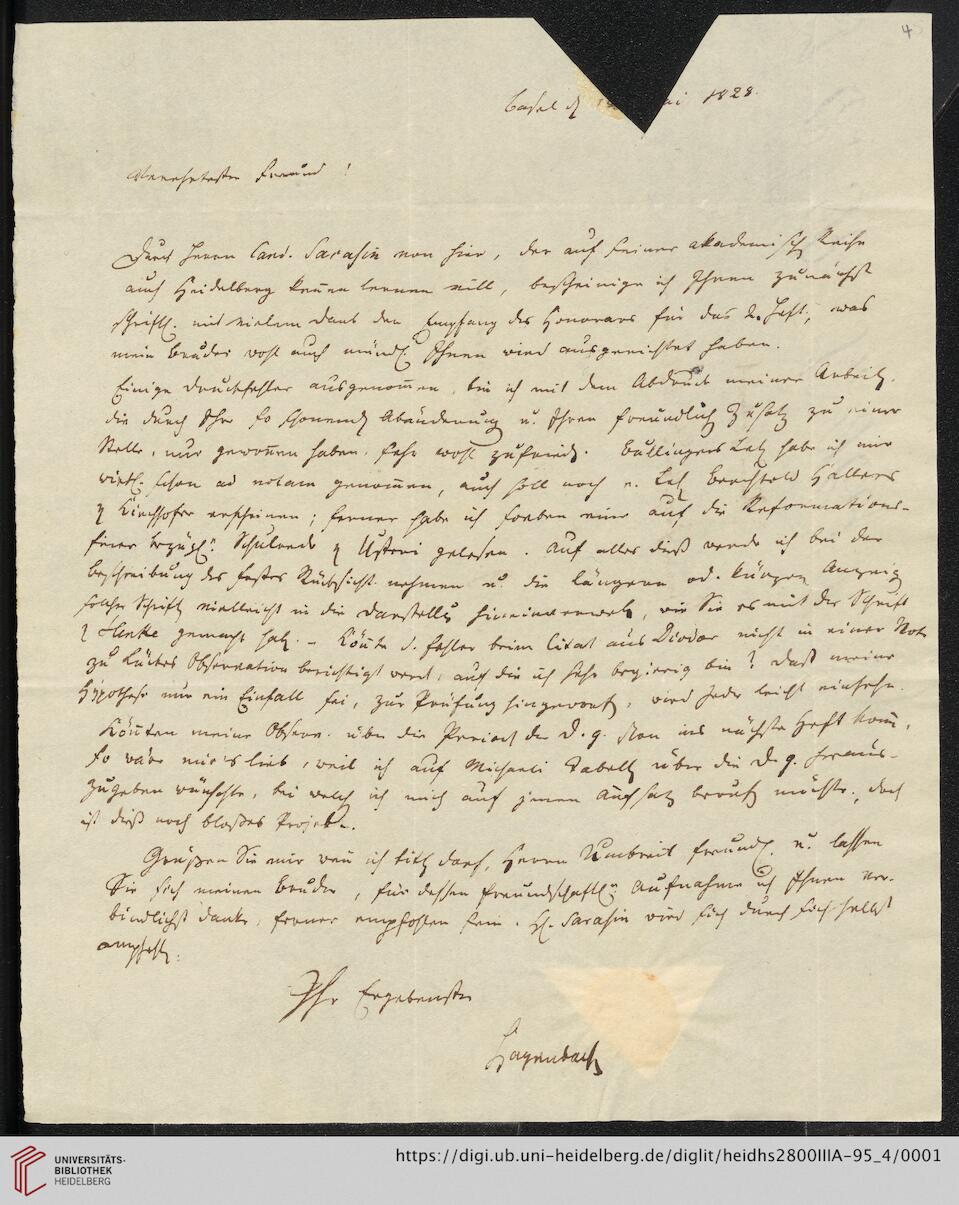 4
Basel d. 1 ai 1828.
Verehrtester Freund!
Durch Herrn Cand. Sarasin von hier, der auf seiner akademisch Reise
auch Heidelberg kennen lernen will, bescheinige ich Ihnen zunächst
schriftl. mit vielem Dank den Empfang des Honorars für das 2. Heft, was
mein Bruder wohl auch mündl. Ihnen wird ausgerichtet haben.
Einige Druckfehler ausgenommen, bin ich mit dem Abdruck meiner Arbeit,
die durch Ihre so schonend Abänderung u. Ihren freundlich Zusatz zu einer
Stelle, nur gewonnen haben, sehr wohl zufried. Bullingers Leb habe ich mir
wirkl. schon ad notam genommen, auch soll noch e. Leb Berchtold Hallers
v Kirchhofer erscheinen; ferner habe ich soeben eine auf die Reformations-
feier bezügl. Schulrede v Usteri gelesen. Auf alles dieß werde ich bei der
Beschreibung des Festes Rücksicht nehmen u. die längern od. kürzern Anzeig
solcher Schrift vielleicht in die Darstellg hineinverweb, wie Sie es mit der Schrift
v Henke gemacht hab. – Könnte d. Fehler beim Citat aus Diodor nicht in einer Note
zu Lückes Observation berichtigt werd, auf die ich sehr begierig bin? Daß meine
Hypothese nur ein Einfall sei, zur Prüfung hingeworf, wird jeder leicht einsehn.
Könnten meine Observ. über die Period der D. g. schon ins nächste Heft komm,
so wäre mir's lieb, weil ich auf Michaeli Tabell über die D. g. heraus-
zugeben wünschte, bei welch ich mich auf jenen Aufsatz beruf möchte, doch
ist dieß noch bloßes Projekt.
Grüßen Sie mir wenn ich bitt darf, Herrn Umbreit freundl. u. lassen
Sie sich meinen Bruder, für dessen freundschaftl. Aufnahme ich Ihnen ver-
bindlichst danke, ferner empfohlen sein. H. Sarasin wird sich durch sich selbst
empfehl.
Ihr Ergebenster
Hagenbach
UNIVERSITÄTS-
BIBLIOTHEK
HEIDELBERG
https://digi.ub.uni-heidelberg.de/diglit/heidhs2800IIIA-95_4/0001